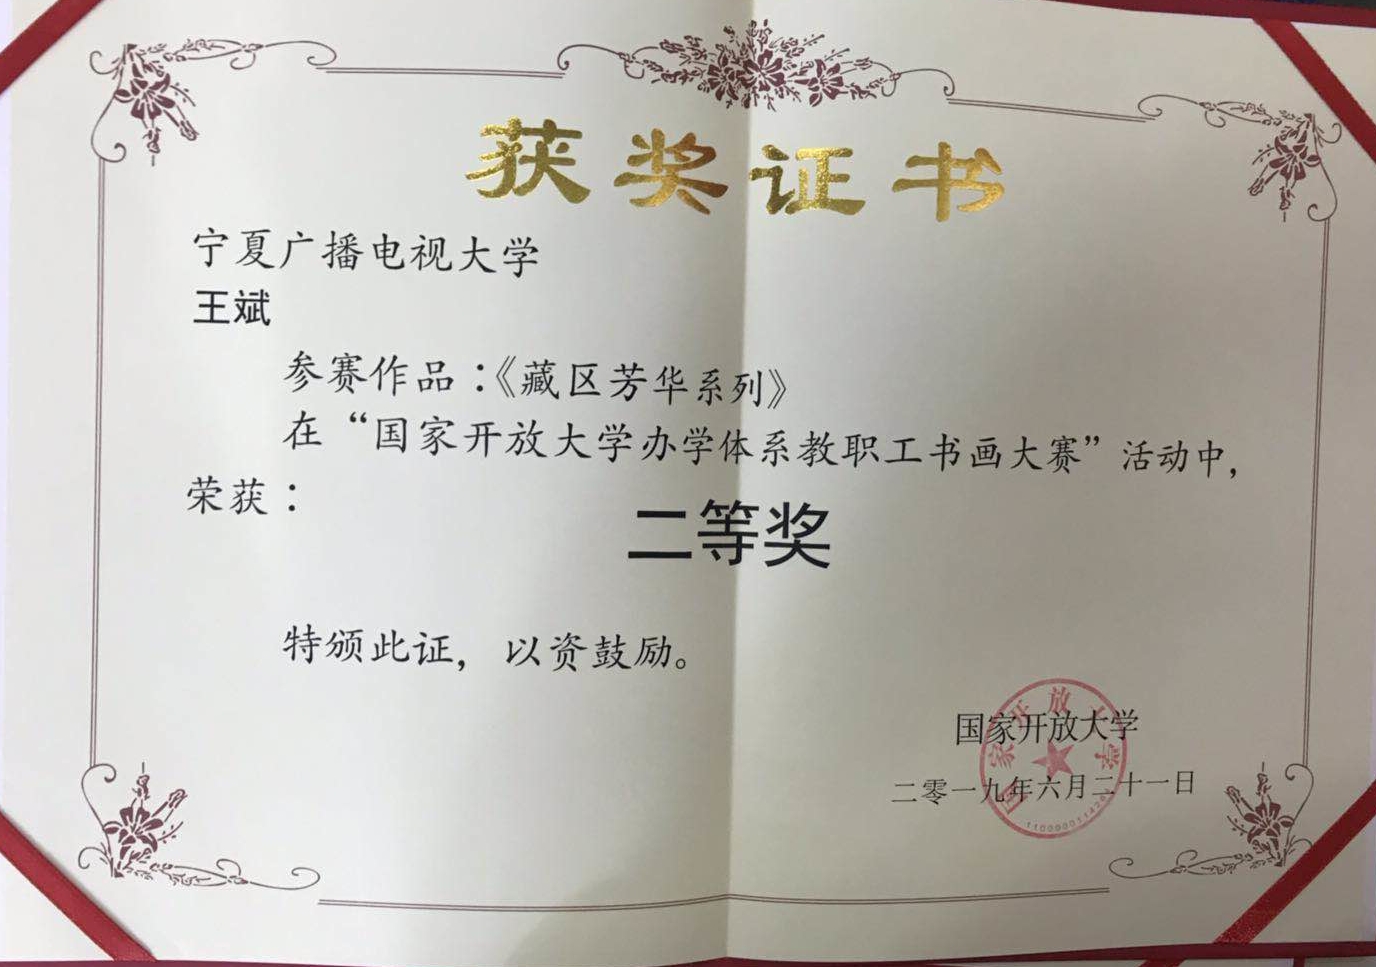 获奖证书
宁夏广播电视大学
王斌
参赛作品：《藏区芳华系列》
在“国家开放大学办学体系教职工书画大赛”活动中，
荣获：
二等奖
特颁此证，以资鼓励。
国家开放大学
二零一九年六月二十一日
国家开放大学